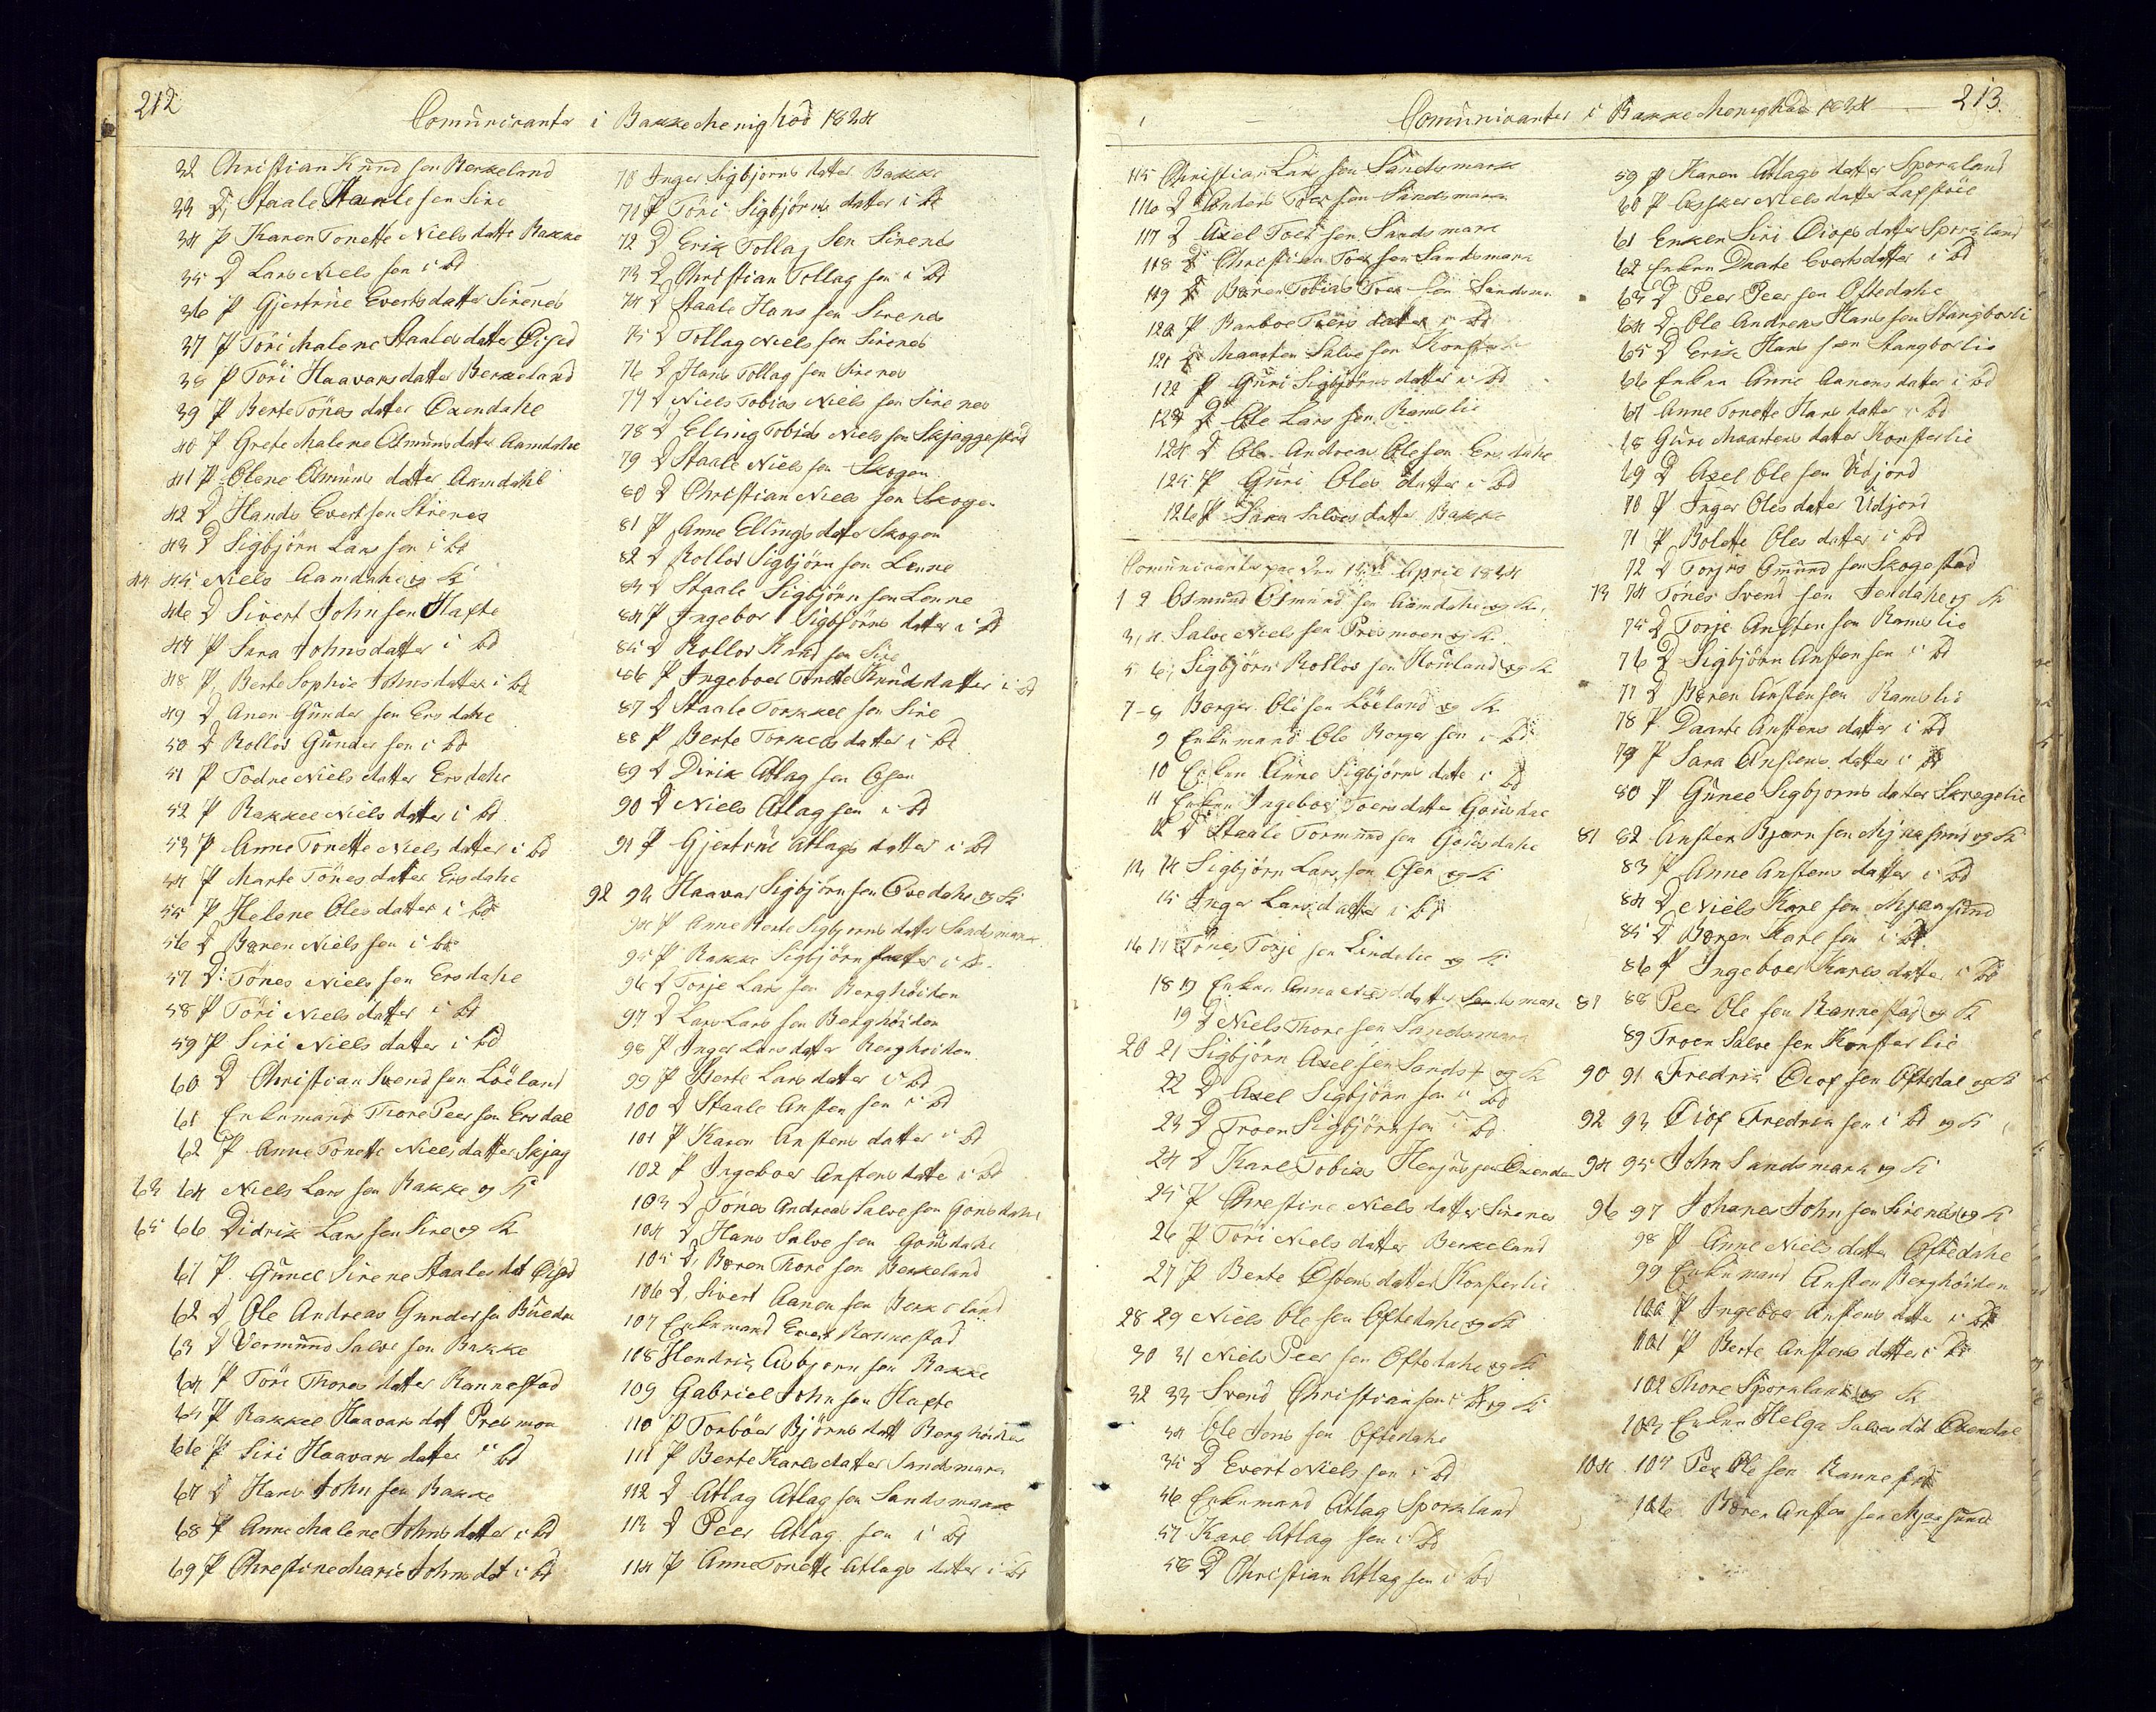 212
Comunicanter i Bakke Menighed 1824
32 Christian Knud sen Berkeland
33 D Staale Staale sen Sire
34 P Karen Tonette Niels datte Bakke
35 D Lars Niels sen i bd
36 P Gjertrue Everts datter Sirenes
37 P Töri Malene Staales datter Öised
38 P Töri Haavars datter Berkeland
39 P Berte Tönes dater Oxendahe
40 P Grete Malene Asmuns dater Aamdahe
41 P Olene Asmuns datter Aamdahl
42 D Hands Evert sen Sirenes
43 D Sigbjörn Lars sen i bd
44 45 Niels Aamdahe og K
46 D Sivert John sen Hafte
47 P Sara Johns datter i bd
48 P Berte Sophie Johns datter i bd
49 D Anen Gunder sen Ersdahe
50 D Rollos Gunder sen i bd
51 P Todne Niels datter Ersdahe
52 P Rakkel Niels datter i bd
53 P Anne Tonette Niels datter i bd
54 P Marte Tönes datter Ersdahe
55 P Helene Oles datter i bd
56 D Bören Niels sen i bd
57 D: Tönes Niels sen Ersdahe
58 P Töri Niels datter i bd
59 P Siri Niels datter i bd
60 D Christian Svend sen Löeland
61 Enkemand Thore Peer sen Ersdal
62 P Anne Tonette Niels datter Skjag
63 64 Niels Lars sen Bakke og K
65 66 Didrik Lars sen Sire og K
61 P Gunel Sirene Staales dat Öised
62 D Ole Andreas Gunder sen
63 D Vermund Salve sen Bakke
64 P Töri Thores datter Rannestad
65 P Rakkel Haavars dat Presmon
66 P Siri Haavars datter i bd
67 D Hans John sen Bakke
68 P Anne Malene Johns datter i bd
69 P Chrestine Marie Johns dat i bd
70 Inger Sigbjörns datter Bakke
71 P Töri Sigbjörns datter i bd
72 D Erik Tollag sen Sirenes
73 D Christian Tollag sen i bd
74 D Staale Hans sen Sirenes
75 D Tollag Niels sen Sirenes
76 D Hans Tollag sen Sirenes
77 D Niels Tobias Niels sen Sirenes
78 D Elling Tobias Niels sen Skjaggestad
79 D Staale Niels sen Skogen
80 D Christian Niels sen Skogen
81 P Anne Ellings dater Skogen
82 D Rollos Sigbjörn sen Lenne
83 D Staale Sigbjörn sen Lenne
84 P Ingebor Sigbjörns datter i bd
85 D Rollos Knud sen Sire
86 P Ingeboer Tonette Knuds datter i bd
87 D Staale Torkkel sen Sire
88 P Berte Torkels datter i bd
89 D Dirik Atlag sen Osen
90 D Niels Atlag sen i bd
91 P Gjertrue Atlags datter i bd
92 93 Haavar Sigbjörn sen Ovedahe og K
94 P Anne Berte Sigbjorns datter Sandsmark
95 P Rakke Sigbjörn datter i bd
96 D Torje Lars sen Berghöiden
97 D Lars Lars sen Berghöiden
98 P Inger Lars datter Berghoiden
99 P Berte Lars datter i bd
100 D Staale Ansten sen i bd
101 P Karen Anstens datter i bd
102 P Ingeboer Anstens datte i bd
103 D Tönes Andreas Salve sen Gonsdahe
104 D Hans Salve sen Gonsdahe
105 D Bören Thore sen Berkeland
106 D Sivert Aanen sen Berkeland
107 Enkemand Evert Rannestad
108 Hendrik Asbjorn sen Bakke
109 Gabriel John sen Hafte
110 P Torböer Björns datt Berghöiden
111 P Berte Karls datter Sandsmark
112 D Atlag Atlag sen Sandsmark
113 D Peer Atlag sen i bd
114 P Anne Tonette Atlags datter i bd
213
Comunicanter i Bakke Menighed 1824
115 Christian Lars sen Sandsmark
116 D Anders Toer sen Sandsmark
117 D Axel Toer sen Sandsmark
118 D Christian Toer sen Sandsmark
119 D Bören Tobias Toer sen Sandsm
120 P Barboe Toers datter i bd
121 D Maarten Salve sen
122 P Guri Sigbjörns datter i bd
123 D Ole Lars sen Ramslie
124 D Ole Andreas Ole sen Ersdahe
125 P Guri Oles datter i bd
126 P Sara Salves datter Bakke
Comunicanter paa den 15de April 1824
1 2 Osmund Osmund sen Aamdahe og K
3, 4 Salve Niels sen Presmoen og K
5 6, Sigbjörn Rollos sen Houland og K
7-8 Borger Ole sen Löeland og K
9 Enkemand Ole Borger sen i bd
10 Enken Anne Sigbjörns date i bd
11 Enken Ingeboer Toers datter Gonsdal
12 D Staale Tormund sen Gonsdahe
13, 14 Sigbjörn Lars sen Osen og K
15 Inger Lars datter i bd
16 17 Tönes Torje sen Lindelie og K
18 19 Enken Anna Niels datter Sandsmark
19 D Niels Thore sen Sandsmark
20 21 Sigbjörn Axel sen Sands + og K
22 D Axel Sigbjörn sen i bd
23 D Troen Sigbjörn sen i bd
24 D Karl Tobias Herjus sen Oxendal
25 P Chrestine Niels datter Sirenes
26 P Töri Niels datter Berkeland
27 P Berte Östens datter Konsterlie
28 29 Niels Ole sen Oftedahe og K
30 31 Niels Peer sen Oftedahe og K
32 33 Svend Christian sen i bd og K
34 Ole Jens sen Oftedahe
35 D Evert Niels sen i bd
56 Enkemand Atlag Sporkland
57 Karl Atlag sen i bd
58 D Christian Atlag sen i bd
59 P Karen Atlags datter Sporkland
60 P Niels datter
61 Enken Siri datter Sporkland
62 Enken Daarte Everts datter i bd
63 D Peer Peer sen Oftedahe
64 D Ole Andreas Hans sen Stangborli
65 D Erik Hans sen Stangborlie
66 Enken Anne Aanens datter i bd
67 Anne Tonette Hans datter i bd
68 Guri Maartens datter Konsterlie
69 D Axel Ole sen Udjord
70 P Inger Oles dater Udjord
71 P Bolette Oles datter i bd
72 D Torjus Omund sen Skogestad
73 74 Tönes Svend sen Jerdahe og K
75 D Torje Ansten sen Ramslie
76 D Sigbjörn Ansten sen i bd
77 D Bören Ansten sen Ramslie
78 P Daarte Anstens datter i bd
79 P Sara Anstens datter i bd
80 P Gunel Sigbjorns datter Skregelie
81 82 Ansten Bjorn sen Mjaasund og K
83 P Anne Anstens datter i bd
84 D Niels Karl sen Mjaasund
85 D Bören Karl sen i bd
86 P Ingeboer Karls datter i bd
87 88 Peer Ole sen Rannestad og K
89 Troen Salve sen Konsterlie
90 91 Fredrik Öiof sen Oftedal og K
92 93 Öiof Fredrik sen i bd og K
94 95 John Sandsmark og K
96 97 Johanes John sen Sirenes og K
98 P Anne Niels datter Oftedahe
99 Enkemand Ansten Berghöiden
100 P Ingeboer Anstens datte i bd
101 P Berte Anstens datter i bd
102 Thore Sporkland og K
103 Enken Helga Salves dat Oxendal
104. 107 Per Ole sen Rannestad
106 Bören Ansten sen Mjaasund